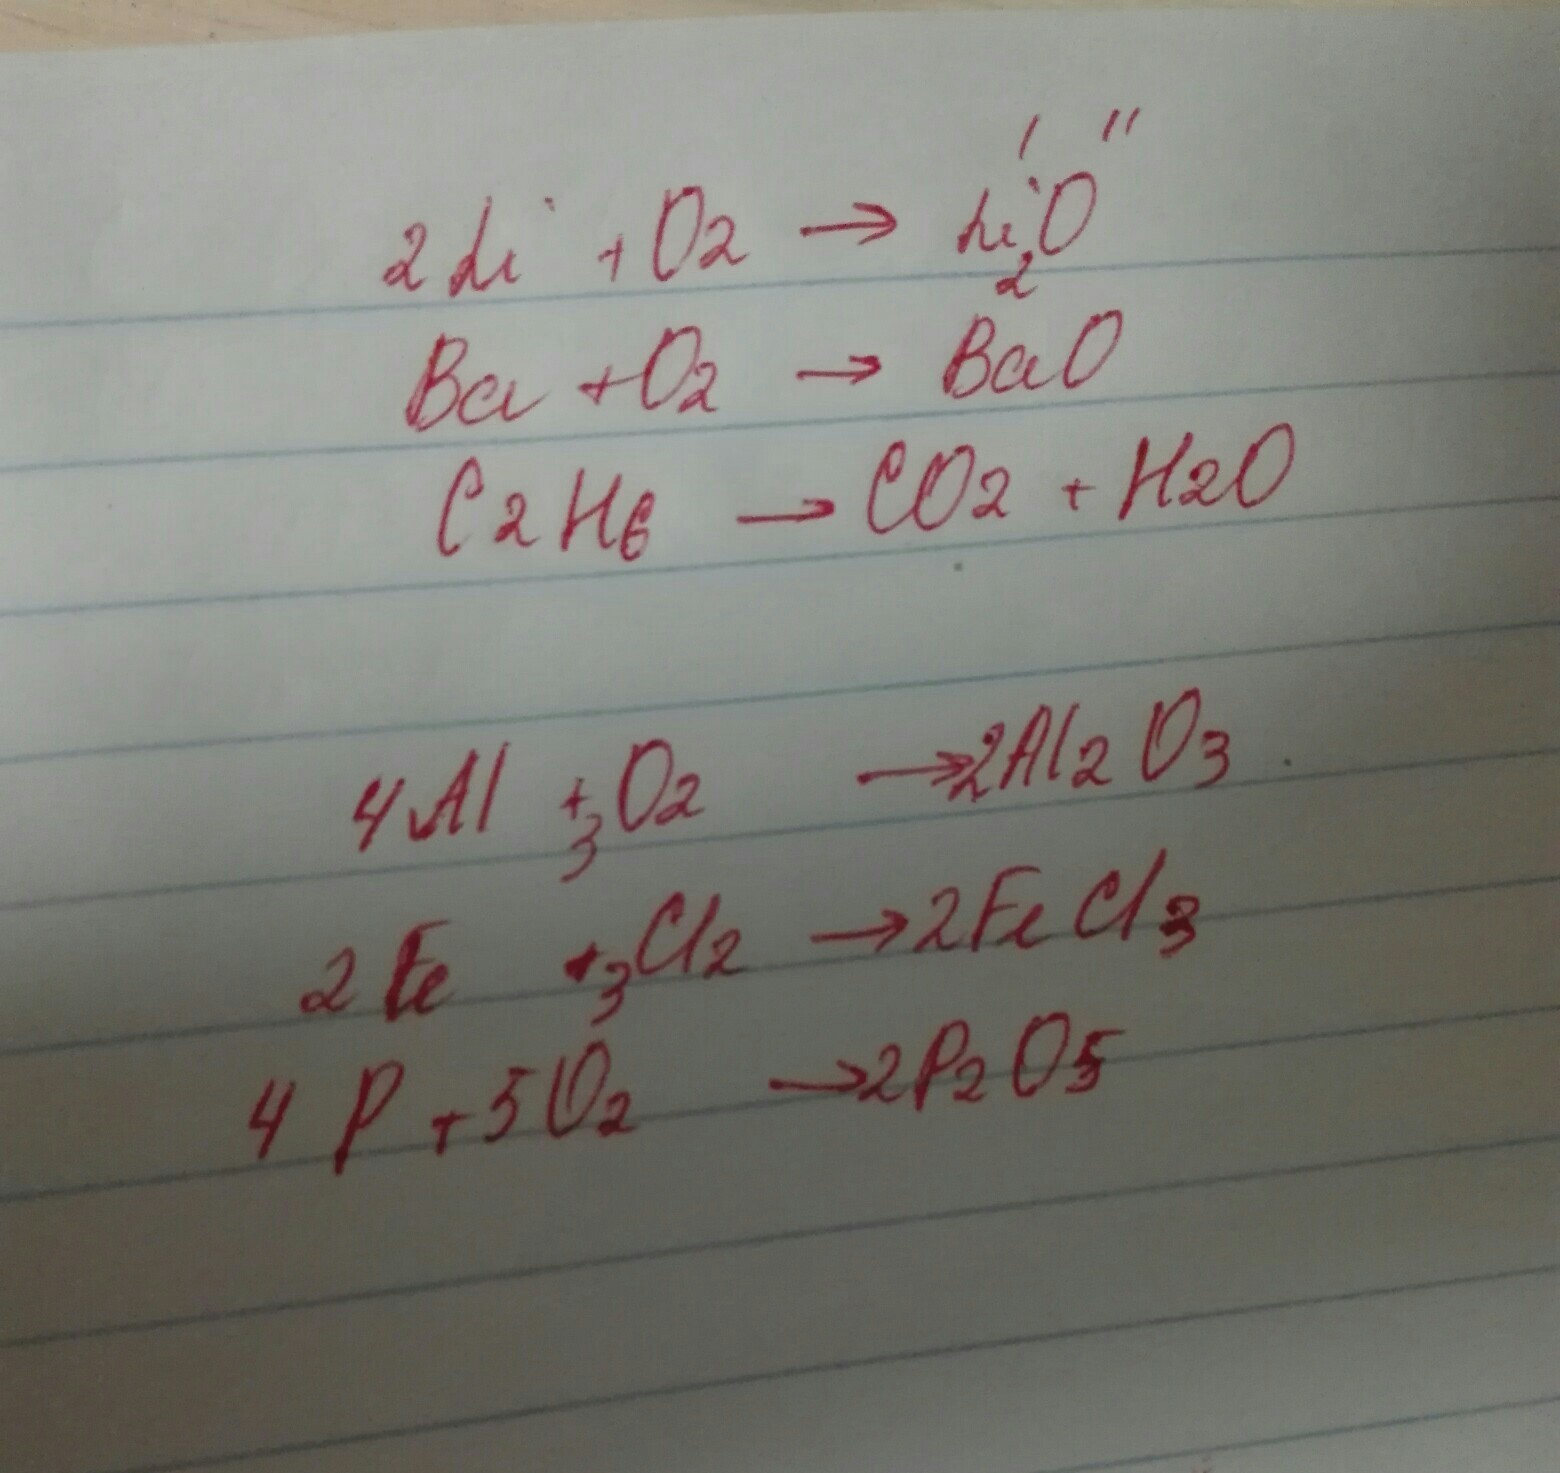 I II
2Li + O2 → Li2O
Ba + O2 → BaO
C2H6 → CO2 + H2O
4Al + 3O2 → 2Al2O3
2Fe + 3Cl2 → 2FeCl3
4P + 5O2 → 2P2O5